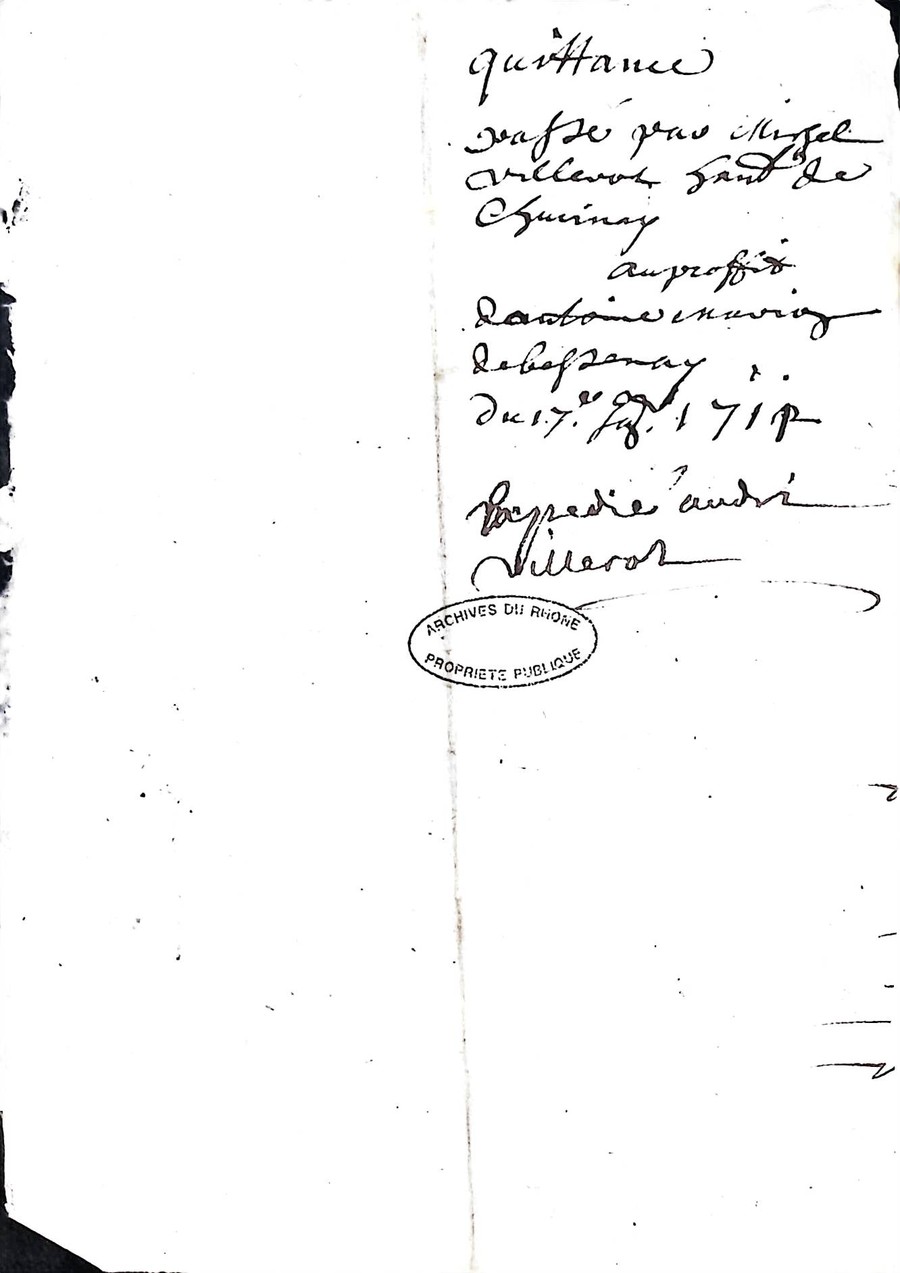 quittance
passé par Michel
villerot hant de
Chevinay
au proffit
dantoine
de bessenay
du 17e
Expedié andré
Villerot
ARCHIVES DU RHONE
PROPRIETE PUBLIQUE